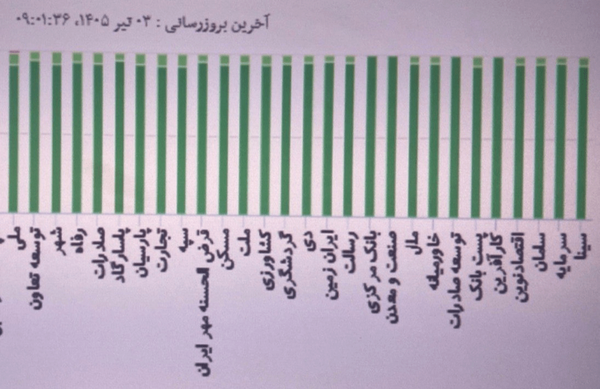 آخرین بروزرسانی : ۰۳ تیر ۱۴۰۵، ۰۹:۰۱:۳۶
ملی
توسعه تعاون
شهر
رفاه
صادرات
پاسارگاد
پارسیان
تجارت
سپه
قرض الحسنه مهر ایران
مسکن
ملت
کشاورزی
گردشگری
دی
ایران زمین
رسالت
بانک مرکزی
صنعت و معدن
ملل
خاورمیانه
توسعه صادرات
پست بانک
کارآفرین
اقتصادنوین
سامان
سرمایه
سینا